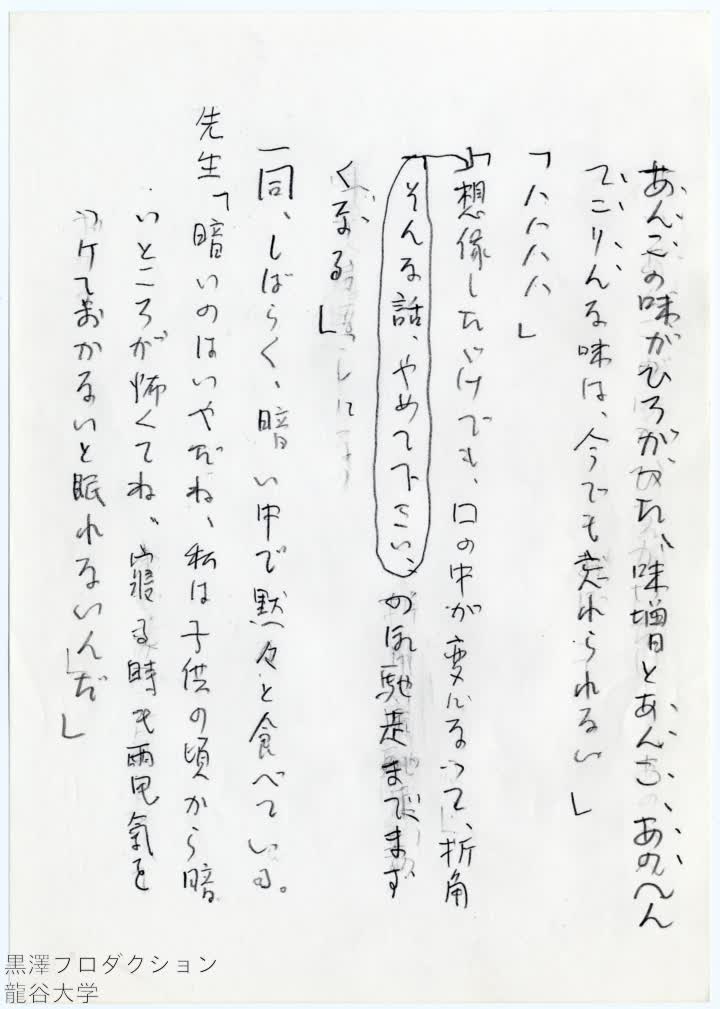 あんこの味がひろがった、味噌とあんこ、あのへん
てこりんな味は、今でも忘れられない」
「ハハハハ」
「想像しただけでも、口の中が変になって、折角
そんな話、やめて下さい、のご馳走までまず
くなる」
一同、しばらく、暗い中で黙々と食べている。
先生「暗いのはいやだね、私は子供の頃から暗
いところが怖くてね、寝る時も電氣を
つけておかないと眠れないんだ」
黒澤プロダクション
龍谷大学